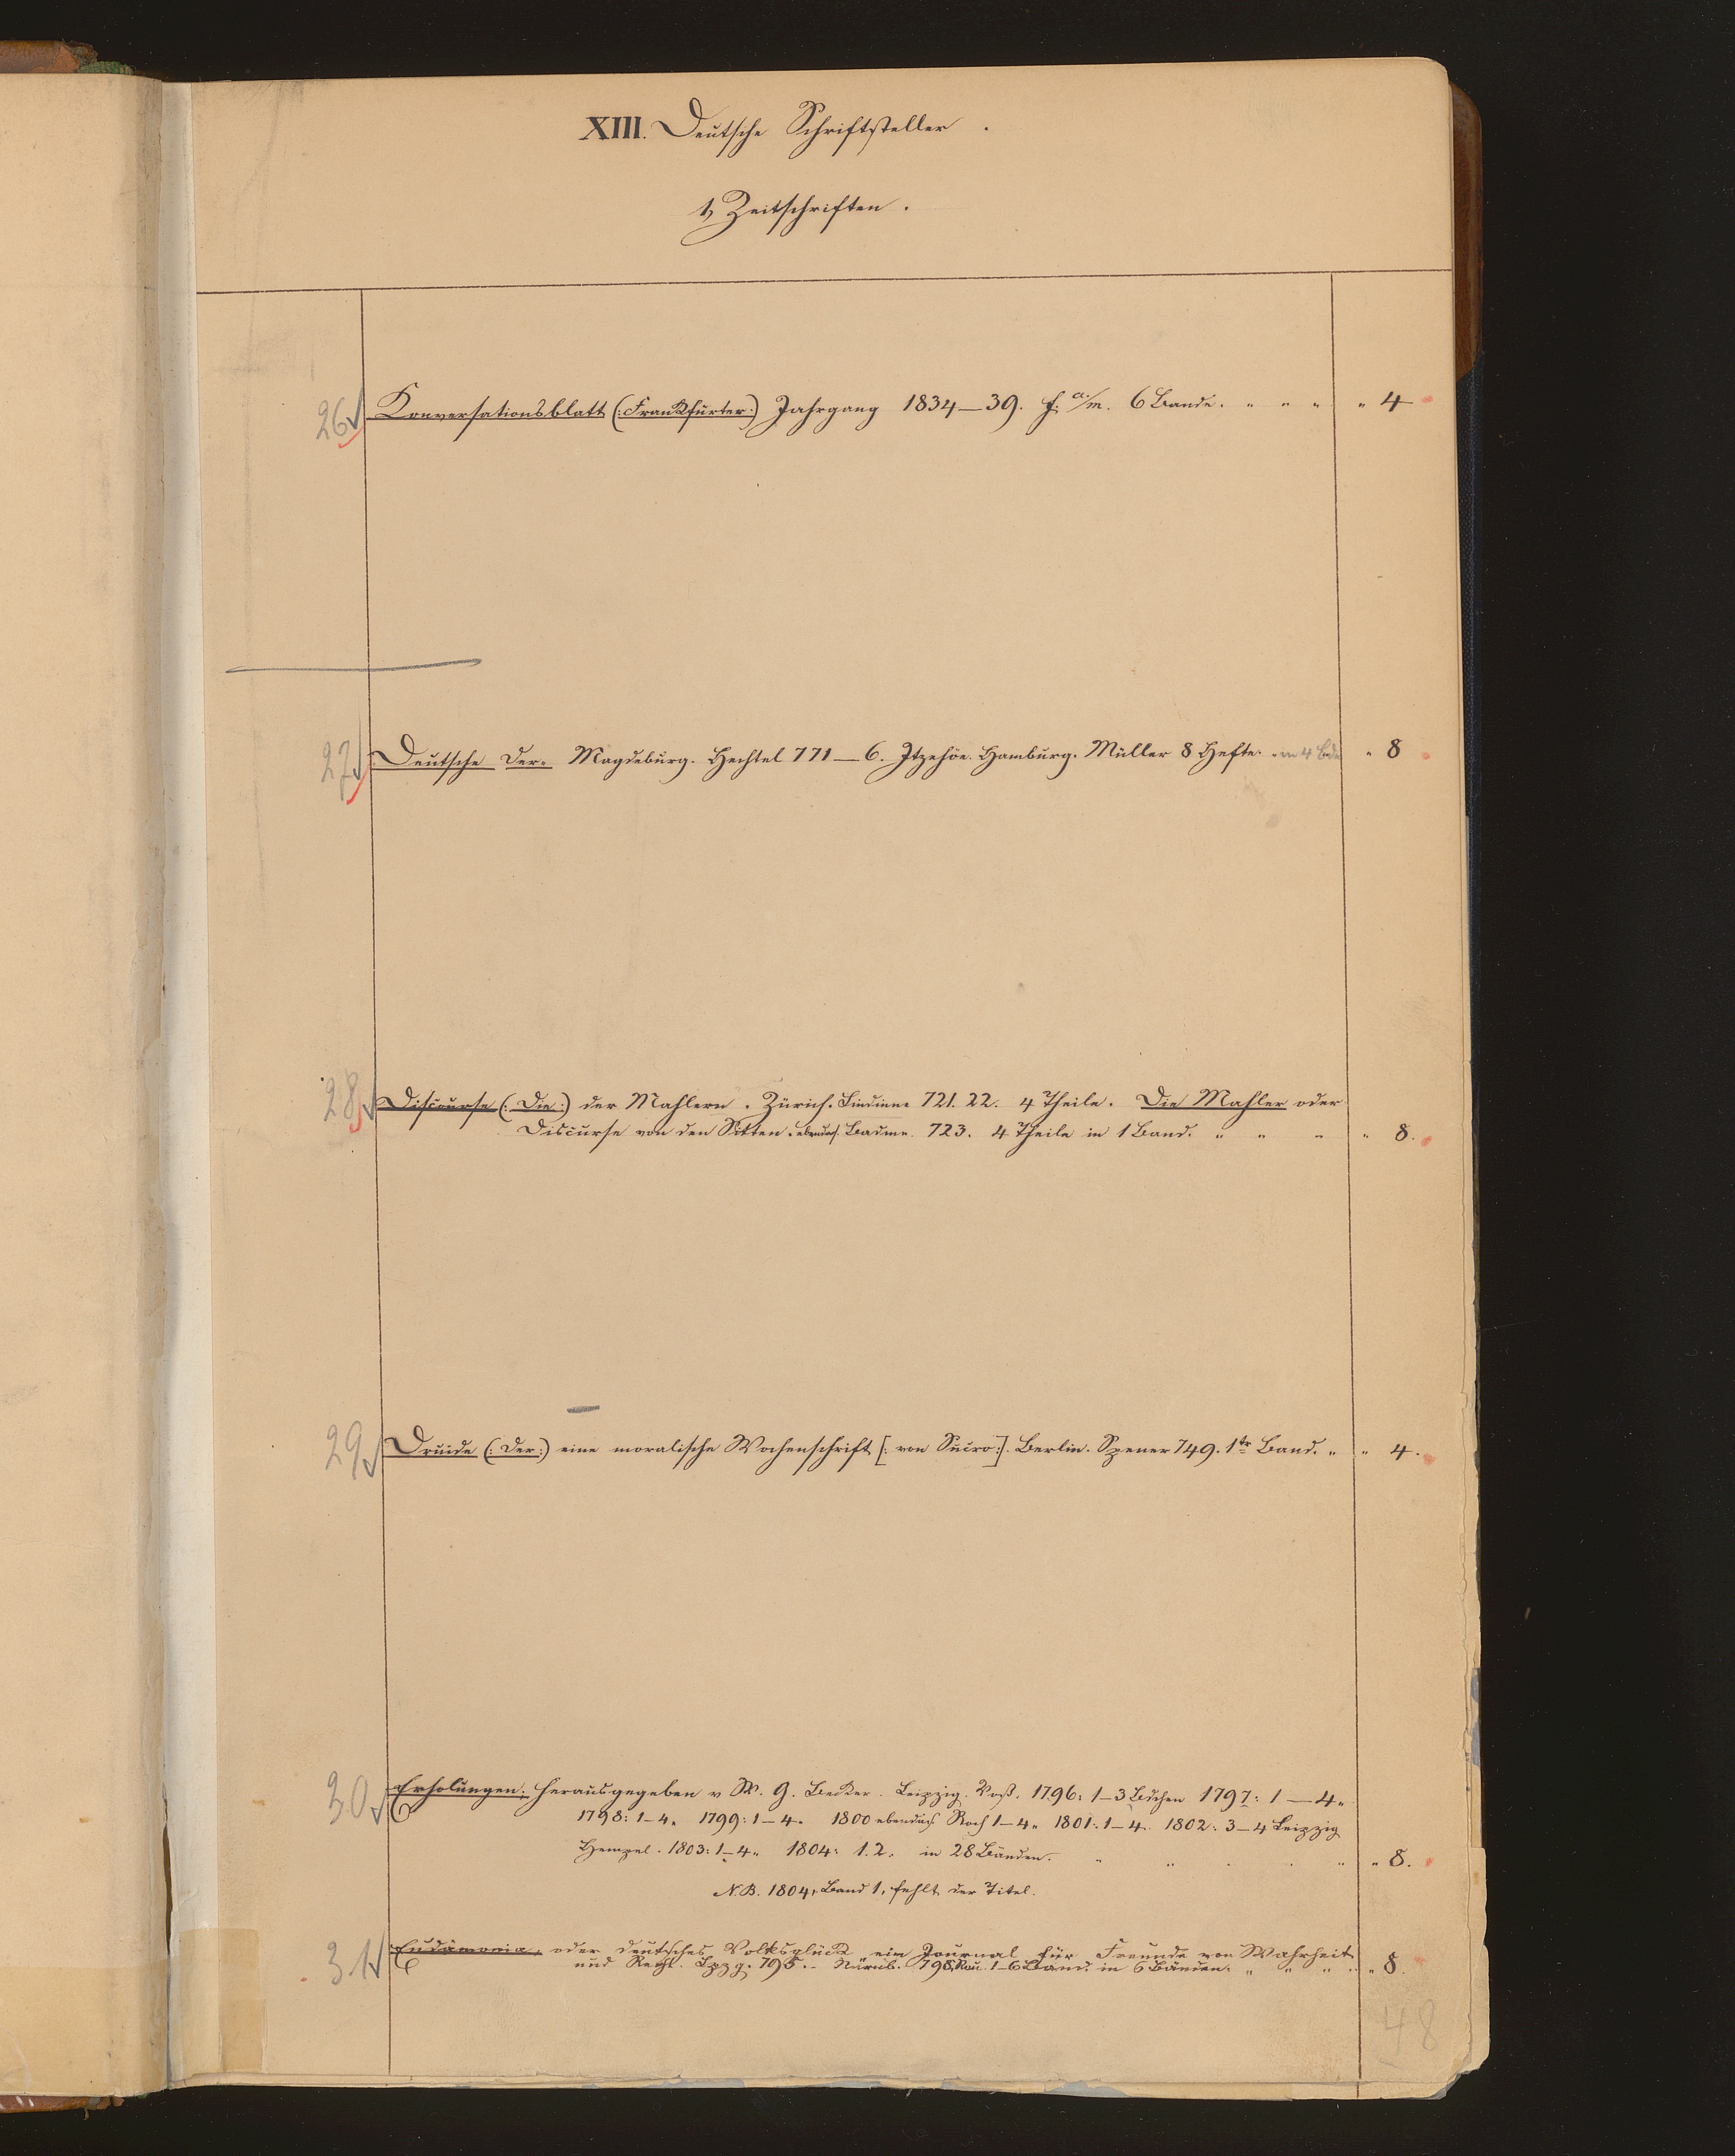 XIII. Deutsche Schriftsteller.
1, Zeitschriften.
26 Konversationsblatt (: Frankfurter :) Jahrgang 1834–39. f. a/m. 6 Bande. " " " " 4
27 Deutsche Der. Magdeburg. Hechtel 771–6. Itzehoe. Hamburg. Müller 8 Hefte. in 4 Bde " 8
28 Discourse (: Die :) der Mahlern. Zürich. Lindinne 721. 22. 4 Theile. Die Mahler oder
Discurse von den Sitten. ebendas. Bodmer. 723. 4 Theile in 1 Band. " " " " 8.
29 Druide (: Der :) eine moralische Wochenschrift [: von Sucro :]. Berlin. Spener 749. 1tr Band. " " 4.
30 Erholungen. herausgegeben v W. G. Becker. Leipzig. Voß. 1796: 1–3 Bdchen 1797: 1–4.
1798: 1–4. 1799: 1–4. 1800 ebendas. Roch 1–4. 1801: 1–4. 1802: 3–4 Leipzig
Hempel. 1803: 1–4. 1804: 1. 2. in 28 Bänden. " " " " " " 8.
N.B. 1804, Band 1, fehlt der Titel.
31 Eudämonia, oder deutsches Volksglück, ein Journal für Freunde von Wahrheit
und Recht. Lpzg. 795.– Nürnb. 798. Rau. 1–6 Band. in 6 Bänden. " " " " " 8.
48